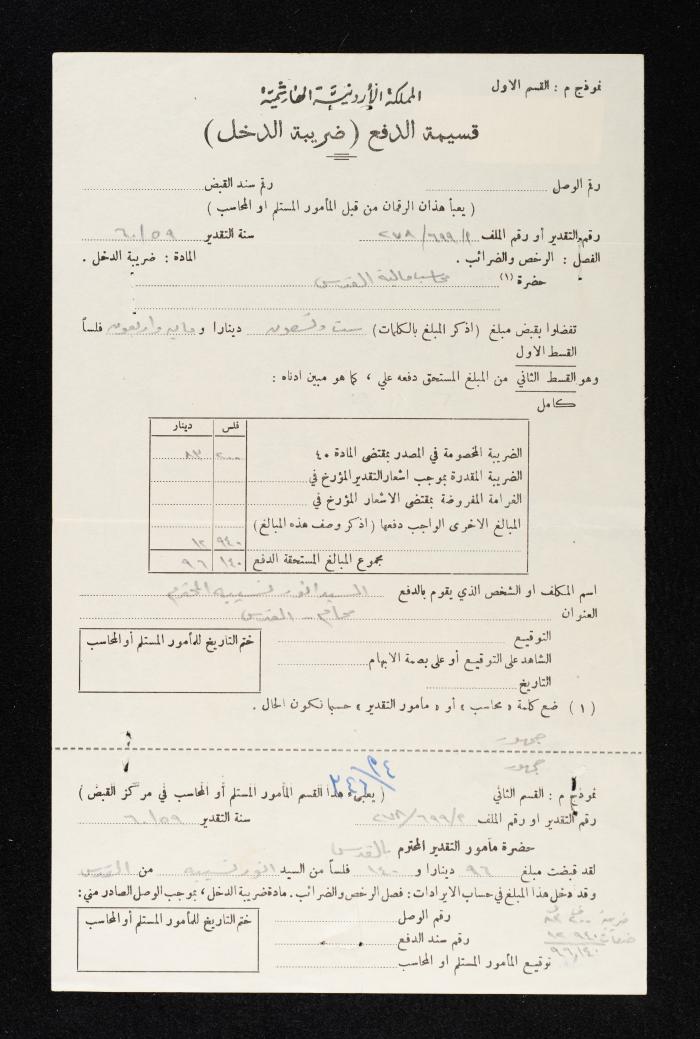 نموذج م : القسم الاول
المملكة الأردنية الهاشمية
قسيمة الدفع (ضريبة الدخل)
رقم الوصل رقم سند القبض
( يعبأ هذان الرقمان من قبل المأمور المستلم او المحاسب )
رقم التقدير أو رقم الملف م/٦٩٩/٢٧٨ سنة التقدير ٦٠/٥٩
الفصل : الرخص والضرائب . المادة : ضريبة الدخل .
حضرة (١) محاسب مالية القدس
تفضلوا بقبض مبلغ (اذكر المبلغ بالكلمات) ست وتسعون دينارا و مايه واربعون فلساً
القسط الاول
وهو القسط الثاني من المبلغ المستحق دفعه علي ، كما هو مبين ادناه :
كامل
فلس دينار
الضريبة المخصومة في المصدر بمقتضى المادة ٤٠ ٢٠٠ ٨٣
الضريبة المقدرة بموجب اشعار التقدير المؤرخ في
الغرامة المفروضة بمقتضى الاشعار المؤرخ في
المبالغ الاخرى الواجب دفعها (اذكر وصف هذه المبالغ)
٩٤٠ ١٢
مجموع المبالغ المستحقة الدفع ١٤٠ ٩٦
اسم المكلف او الشخص الذي يقوم بالدفع السيد انور نسيبه المحترم
العنوان محام - القدس
التوقيع
ختم التاريخ للمأمور المستلم أو المحاسب
الشاهد على التوقيع أو على بصمة الابهام
التاريخ
(١) ضع كلمة « محاسب » أو « مأمور التقدير » حسبما تكون الحال .
نموذج م : القسم الثاني ( يعبىء هذا القسم المأمور المستلم أو المحاسب في مركز القبض )
رقم التقدير او رقم الملف م/٦٩٩/٢٧٨ سنة التقدير ٦٠/٥٩
حضرة مأمور التقدير المحترم بالقدس
لقد قبضت مبلغ ٩٦ دينارا و ١٤٠ فلساً من السيد انور نسيبه من القدس
وقد دخل هذا المبلغ في حساب الايرادات : فصل الرخص والضرائب . مادة ضريبة الدخل ، بموجب الوصل الصادر مني :
رقم الوصل
ختم التاريخ للمأمور المستلم أو المحاسب
رقم سند الدفع
توقيع المأمور المستلم او المحاسب
ضريبة ٢٠٠ ٨٣
٩٤٠ ١٢
٩٦,١٤٠